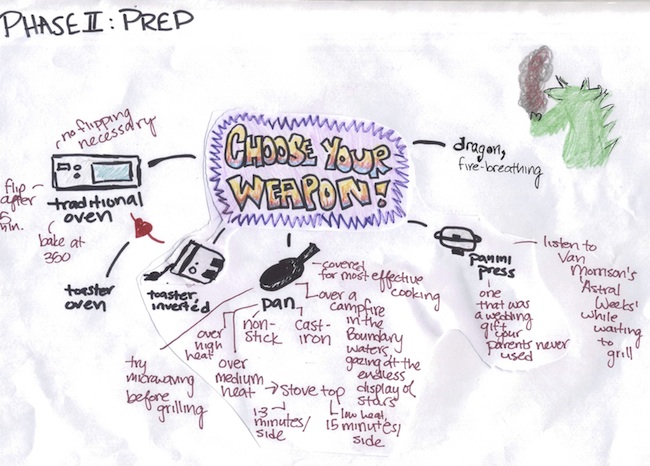 PHASE II: PREP
CHOOSE YOUR
WEAPON!
no flipping
necessary
traditional
oven
flip
after
5
min.
bake at
350
toaster
oven
toaster
inverted
pan
covered
for most effective
cooking
over a
campfire
in the
Boundary
Waters,
gazing at the
endless
display of
stars
non-
stick
cast-
iron
over
high
heat
over
medium
heat
stove top
1-3
minutes/
side
low heat,
15 minutes/
side
try
microwaving
before
grilling
dragon,
fire-breathing
panini
press
one
that was
a wedding
gift
your
parents never
used
listen to
Van
Morrison's
'Astral
Weeks'
while
waiting
to
grill